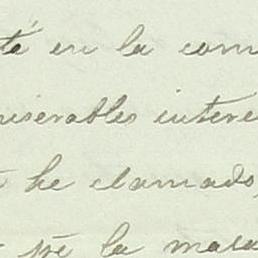 té en la com
miserables intere
he clamado,
pr la mala